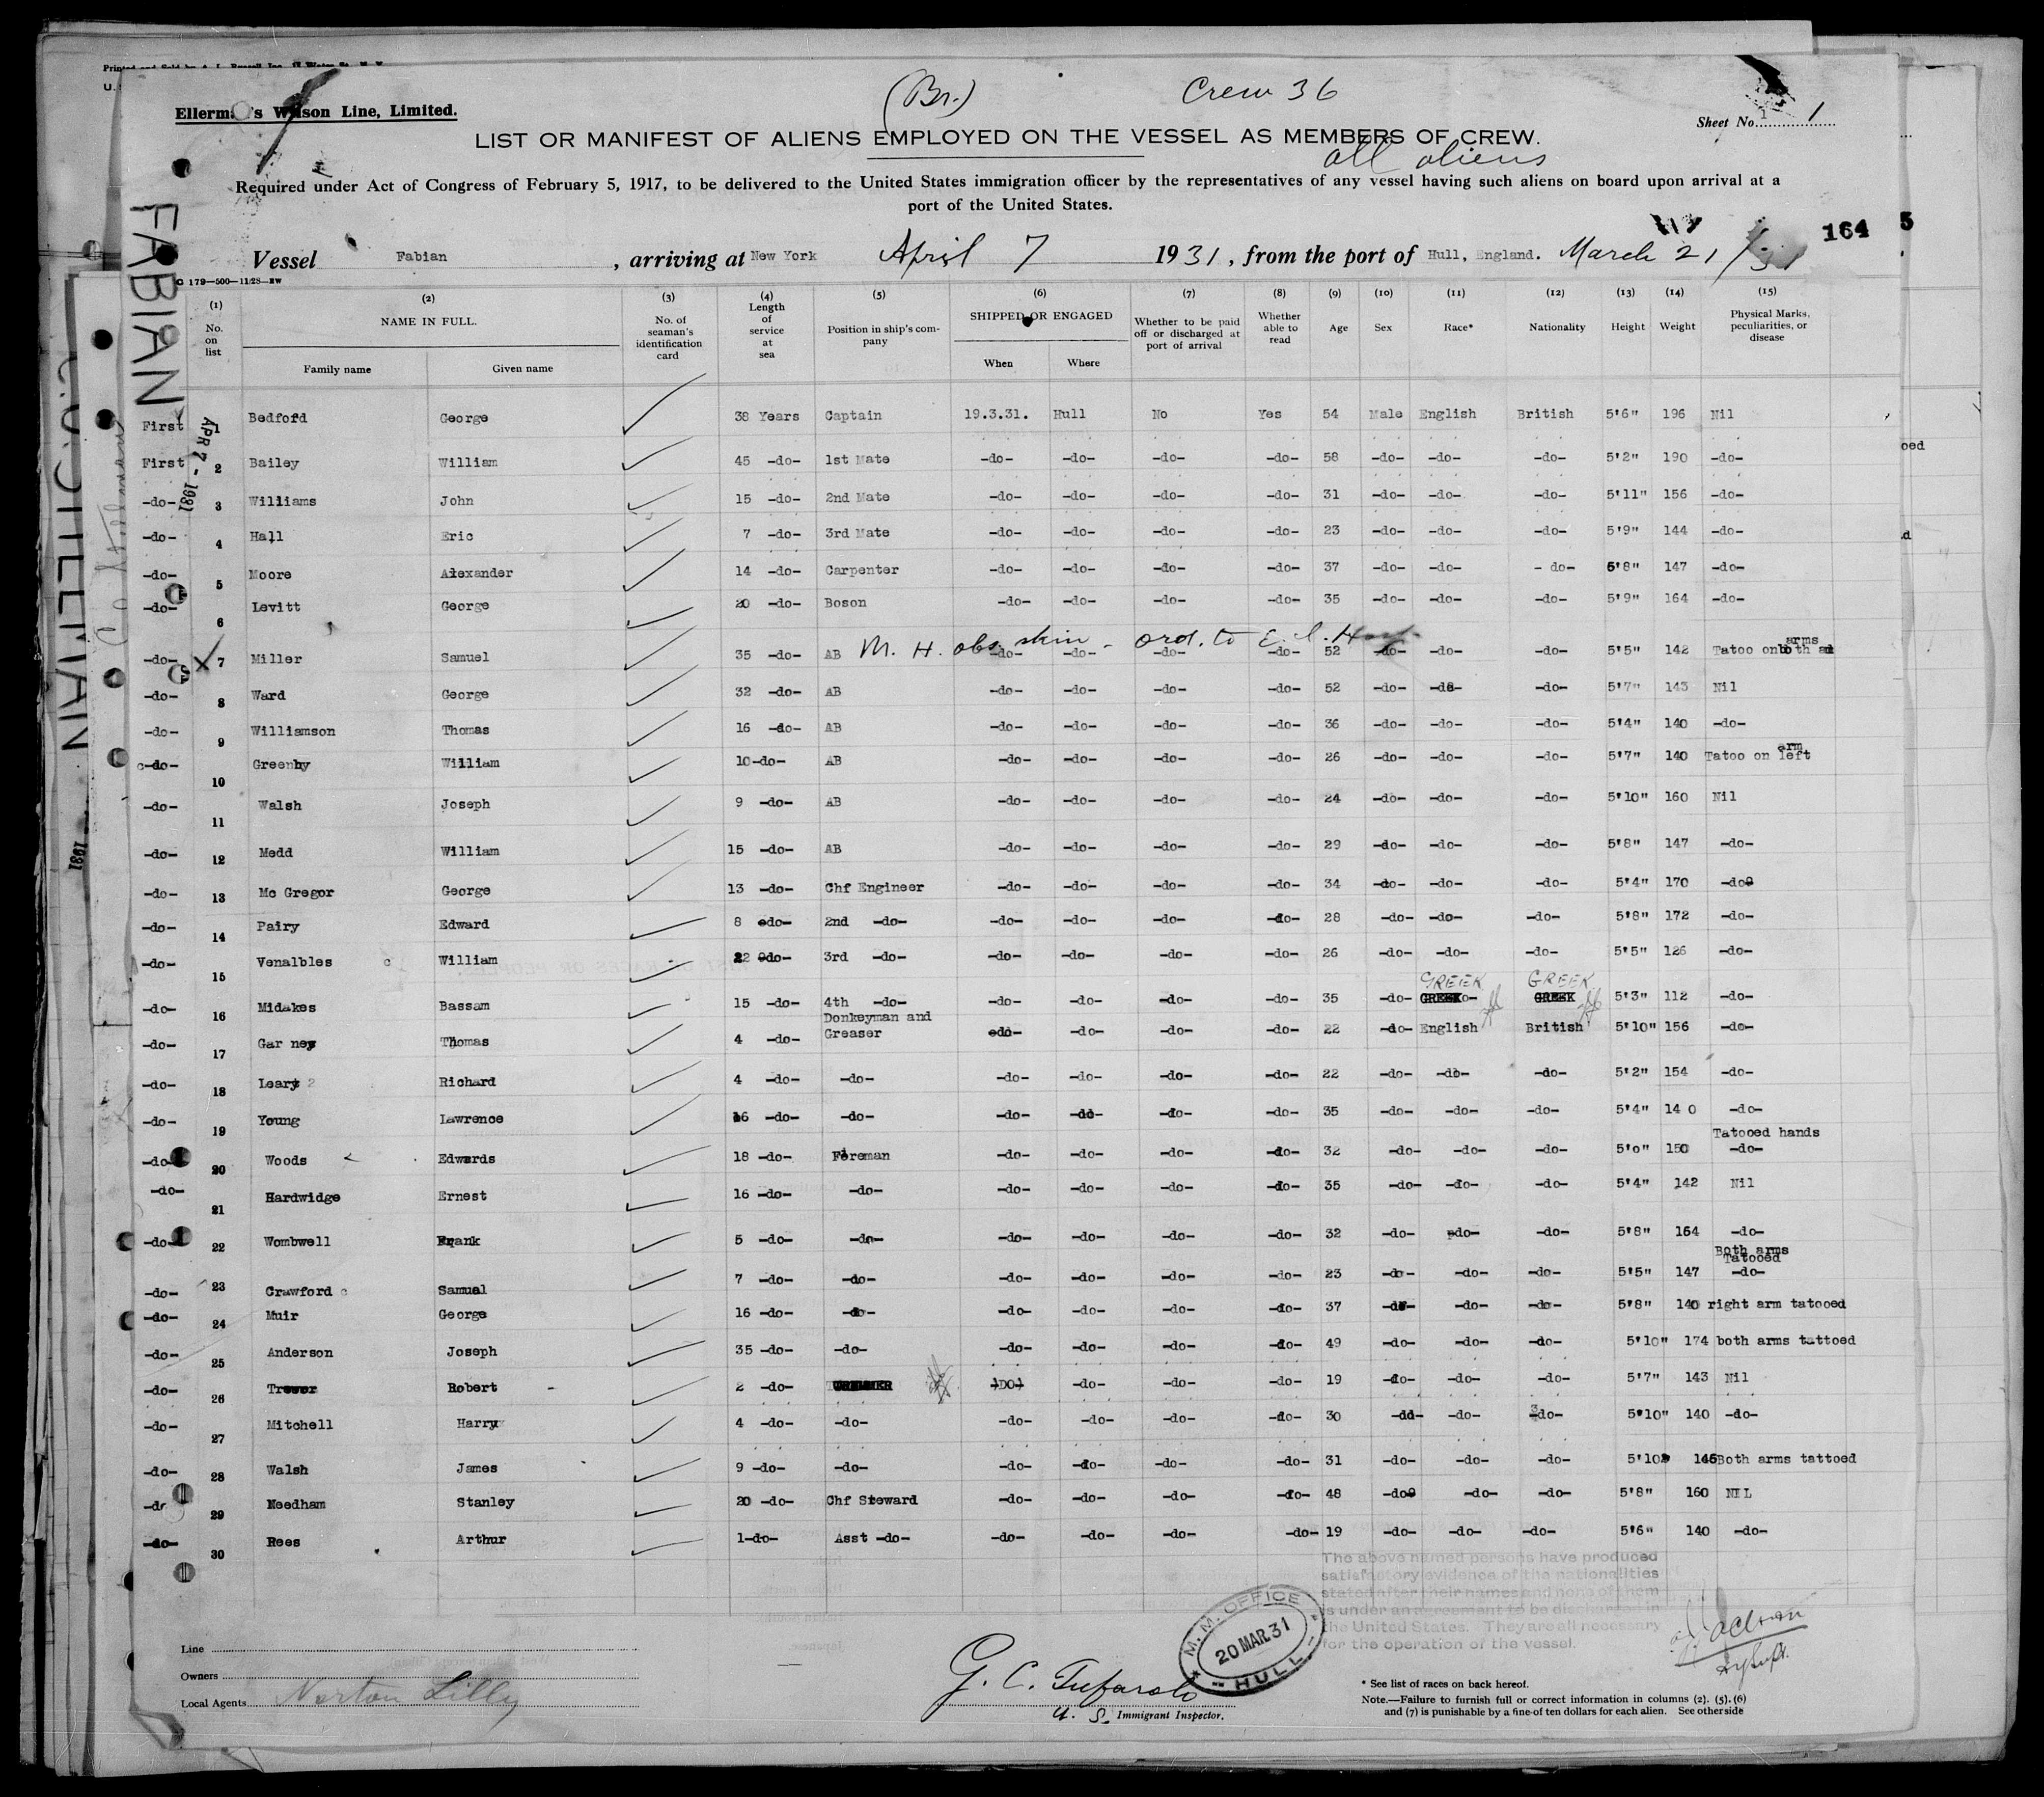 Ellerman's Wilson Line, Limited.
(Br.)
Crew 36
Sheet No. 1
LIST OR MANIFEST OF ALIENS EMPLOYED ON THE VESSEL AS MEMBERS OF CREW.
all aliens
Required under Act of Congress of February 5, 1917, to be delivered to the United States immigration officer by the representatives of any vessel having such aliens on board upon arrival at a
port of the United States.
164 5
Vessel Fabian, arriving at New York April 7 1931, from the port of Hull, England. March 21/31
G 179—500—11/28—EW
FABIAN
APR 7 - 1931
1931
(1) No. on list
(2) NAME IN FULL. Family name Given name
(3) No. of seaman's identification card
(4) Length of service at sea
(5) Position in ship's company
(6) SHIPPED OR ENGAGED When Where
(7) Whether to be paid off or discharged at port of arrival
(8) Whether able to read
(9) Age
(10) Sex
(11) Race*
(12) Nationality
(13) Height
(14) Weight
(15) Physical Marks, peculiarities, or disease
First 1 Bedford George 38 Years Captain 19.3.31. Hull No Yes 54 Male English British 5'6" 196 Nil
First 2 Bailey William 45 -do- 1st Mate -do- -do- -do- -do- 58 -do- -do- -do- 5'2" 190 -do-
-do- 3 Williams John 15 -do- 2nd Mate -do- -do- -do- -do- 31 -do- -do- -do- 5'11" 156 -do-
-do- 4 Hall Eric 7 -do- 3rd Mate -do- -do- -do- -do- 23 -do- -do- -do- 5'9" 144 -do-
-do- 5 Moore Alexander 14 -do- Carpenter -do- -do- -do- -do- 37 -do- -do- - do- 5'8" 147 -do-
-do- 6 Levitt George 20 -do- Boson -do- -do- -do- -do- 35 -do- -do- -do- 5'9" 164 -do-
M. H. obs. skin - ord. to E. I. Hosp.
-do- 7 Miller Samuel 35 -do- AB -do- -do- -do- -do- 52 -do- -do- -do- 5'5" 142 Tatoo on both arms
-do- 8 Ward George 32 -do- AB -do- -do- -do- -do- 52 -do- -do- -do- 5'7" 143 Nil
-do- 9 Williamson Thomas 16 -do- AB -do- -do- -do- -do- 36 -do- -do- -do- 5'4" 140 -do-
-do- 10 Greenhy William 10-do- AB -do- -do- -do- -do- 26 -do- -do- -do- 5'7" 140 Tatoo on left arm
-do- 11 Walsh Joseph 9 -do- AB -do- -do- -do- -do- 24 -do- -do- -do- 5'10" 160 Nil
-do- 12 Medd William 15 -do- AB -do- -do- -do- -do- 29 -do- -do- -do- 5'8" 147 -do-
-do- 13 Mc Gregor George 13 -do- Chf Engineer -do- -do- -do- -do- 34 -do- -do- -do- 5'4" 170 -do-
-do- 14 Pairy Edward 8 -do- 2nd -do- -do- -do- -do- -do- 28 -do- -do- -do- 5'8" 172 -do-
-do- 15 Venalbles William 22 -do- 3rd -do- -do- -do- -do- -do- 26 -do- -do- -do- 5'5" 126 -do-
GREEK GREEK
-do- 16 Midakes Bassam 15 -do- 4th -do- -do- -do- -do- -do- 35 -do- GREEK GREEK 5'3" 112 -do-
-do- 17 Gar ney Thomas 4 -do- Donkeyman and Greaser -do- -do- -do- -do- 22 -do- English British 5'10" 156 -do-
-do- 18 Leary Richard 4 -do- -do- -do- -do- -do- -do- 22 -do- -do- -do- 5'2" 154 -do-
-do- 19 Young Lawrence 16 -do- -do- -do- -do- -do- -do- 35 -do- -do- -do- 5'4" 14 0 -do-
-do- 20 Woods Edwards 18 -do- Fireman -do- -do- -do- -do- 32 -do- -do- -do- 5'0" 150 Tatooed hands -do-
-do- 21 Hardwidge Ernest 16 -do- -do- -do- -do- -do- -do- 35 -do- -do- -do- 5'4" 142 Nil
-do- 22 Wombwell Frank 5 -do- -do- -do- -do- -do- -do- 32 -do- -do- -do- 5'8" 164 -do-
-do- 23 Crawford Samual 7 -do- -do- -do- -do- -do- -do- 23 -do- -do- -do- 5'5" 147 Both arms Tatooed -do-
-do- 24 Muir George 16 -do- -do- -do- -do- -do- -do- 37 -do- -do- -do- 5'8" 140 right arm tatooed
-do- 25 Anderson Joseph 35 -do- -do- -do- -do- -do- -do- 49 -do- -do- -do- 5'10" 174 both arms tattoed
-do- 26 Robert 2 -do- )DO) -do- -do- -do- 19 -do- -do- -do- 5'7" 143 Nil
-do- 27 Mitchell Harry 4 -do- -do- -do- -do- -do- -do- 30 -dd- -do- -do- 5'10" 140 -do-
-do- 28 Walsh James 9 -do- -do- -do- -do- -do- -do- 31 -do- -do- -do- 5'10 146 Both arms tattoed
-do- 29 Needham Stanley 20 -do- Chf Steward -do- -do- -do- -do- 48 -do- -do- -do- 5'8" 160 NIL
-do- 30 Rees Arthur 1-do- Asst -do- -do- -do- -do- -do- 19 -do- -do- -do- 5'6" 140 -do-
The above named persons have produced
satisfactory evidence of the nationalities
stated after their names and none of them
is under an agreement to be discharged in
the United States. They are all necessary
for the operation of the vessel.
M. M. OFFICE 20 MAR 31 HULL
Line
Owners
Local Agents Norton Lilly
G. C.
U. S. Immigrant Inspector.
* See list of races on back hereof.
Note.—Failure to furnish full or correct information in columns (2). (5). (6)
and (7) is punishable by a fine of ten dollars for each alien. See other side